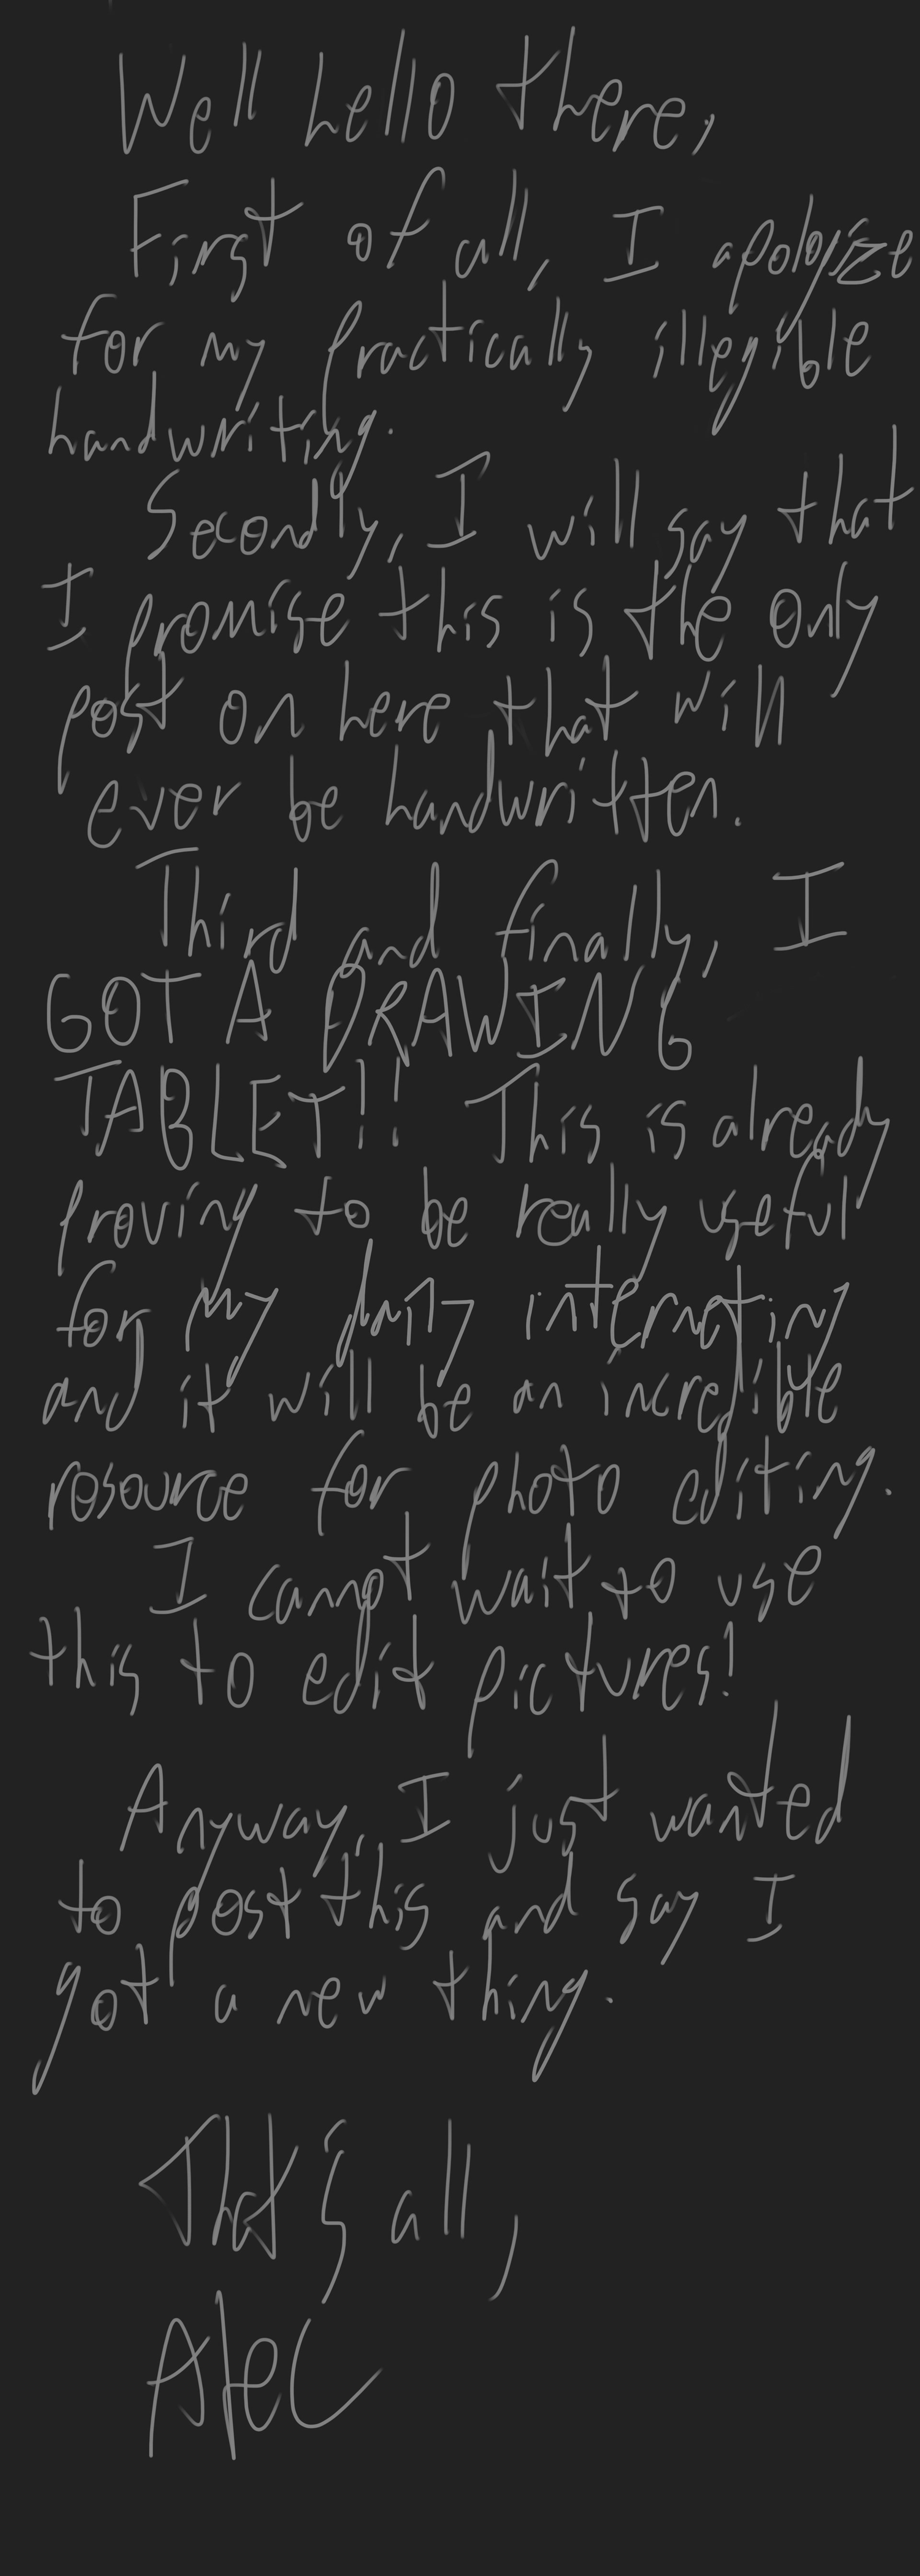 Well hello there,
First of all, I apologize
for my practically illegible
handwriting.
Secondly, I will say that
I promise this is the only
post on here that will
ever be handwritten.
Third and finally, I
GOT A DRAWING
TABLET!! This is already
proving to be really useful
for my daily interneting
and it will be an incredible
resource for photo editing.
I cannot wait to use
this to edit pictures!
Anyway, I just wanted
to post this and say I
got a new thing.
That's all,
Alec